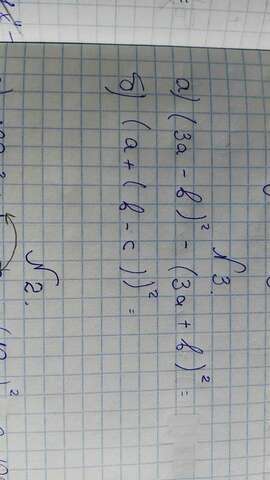 N 3.
а) (3a - b)² - (3a + b)² =
б) (a + (b - c))² =
N 2.